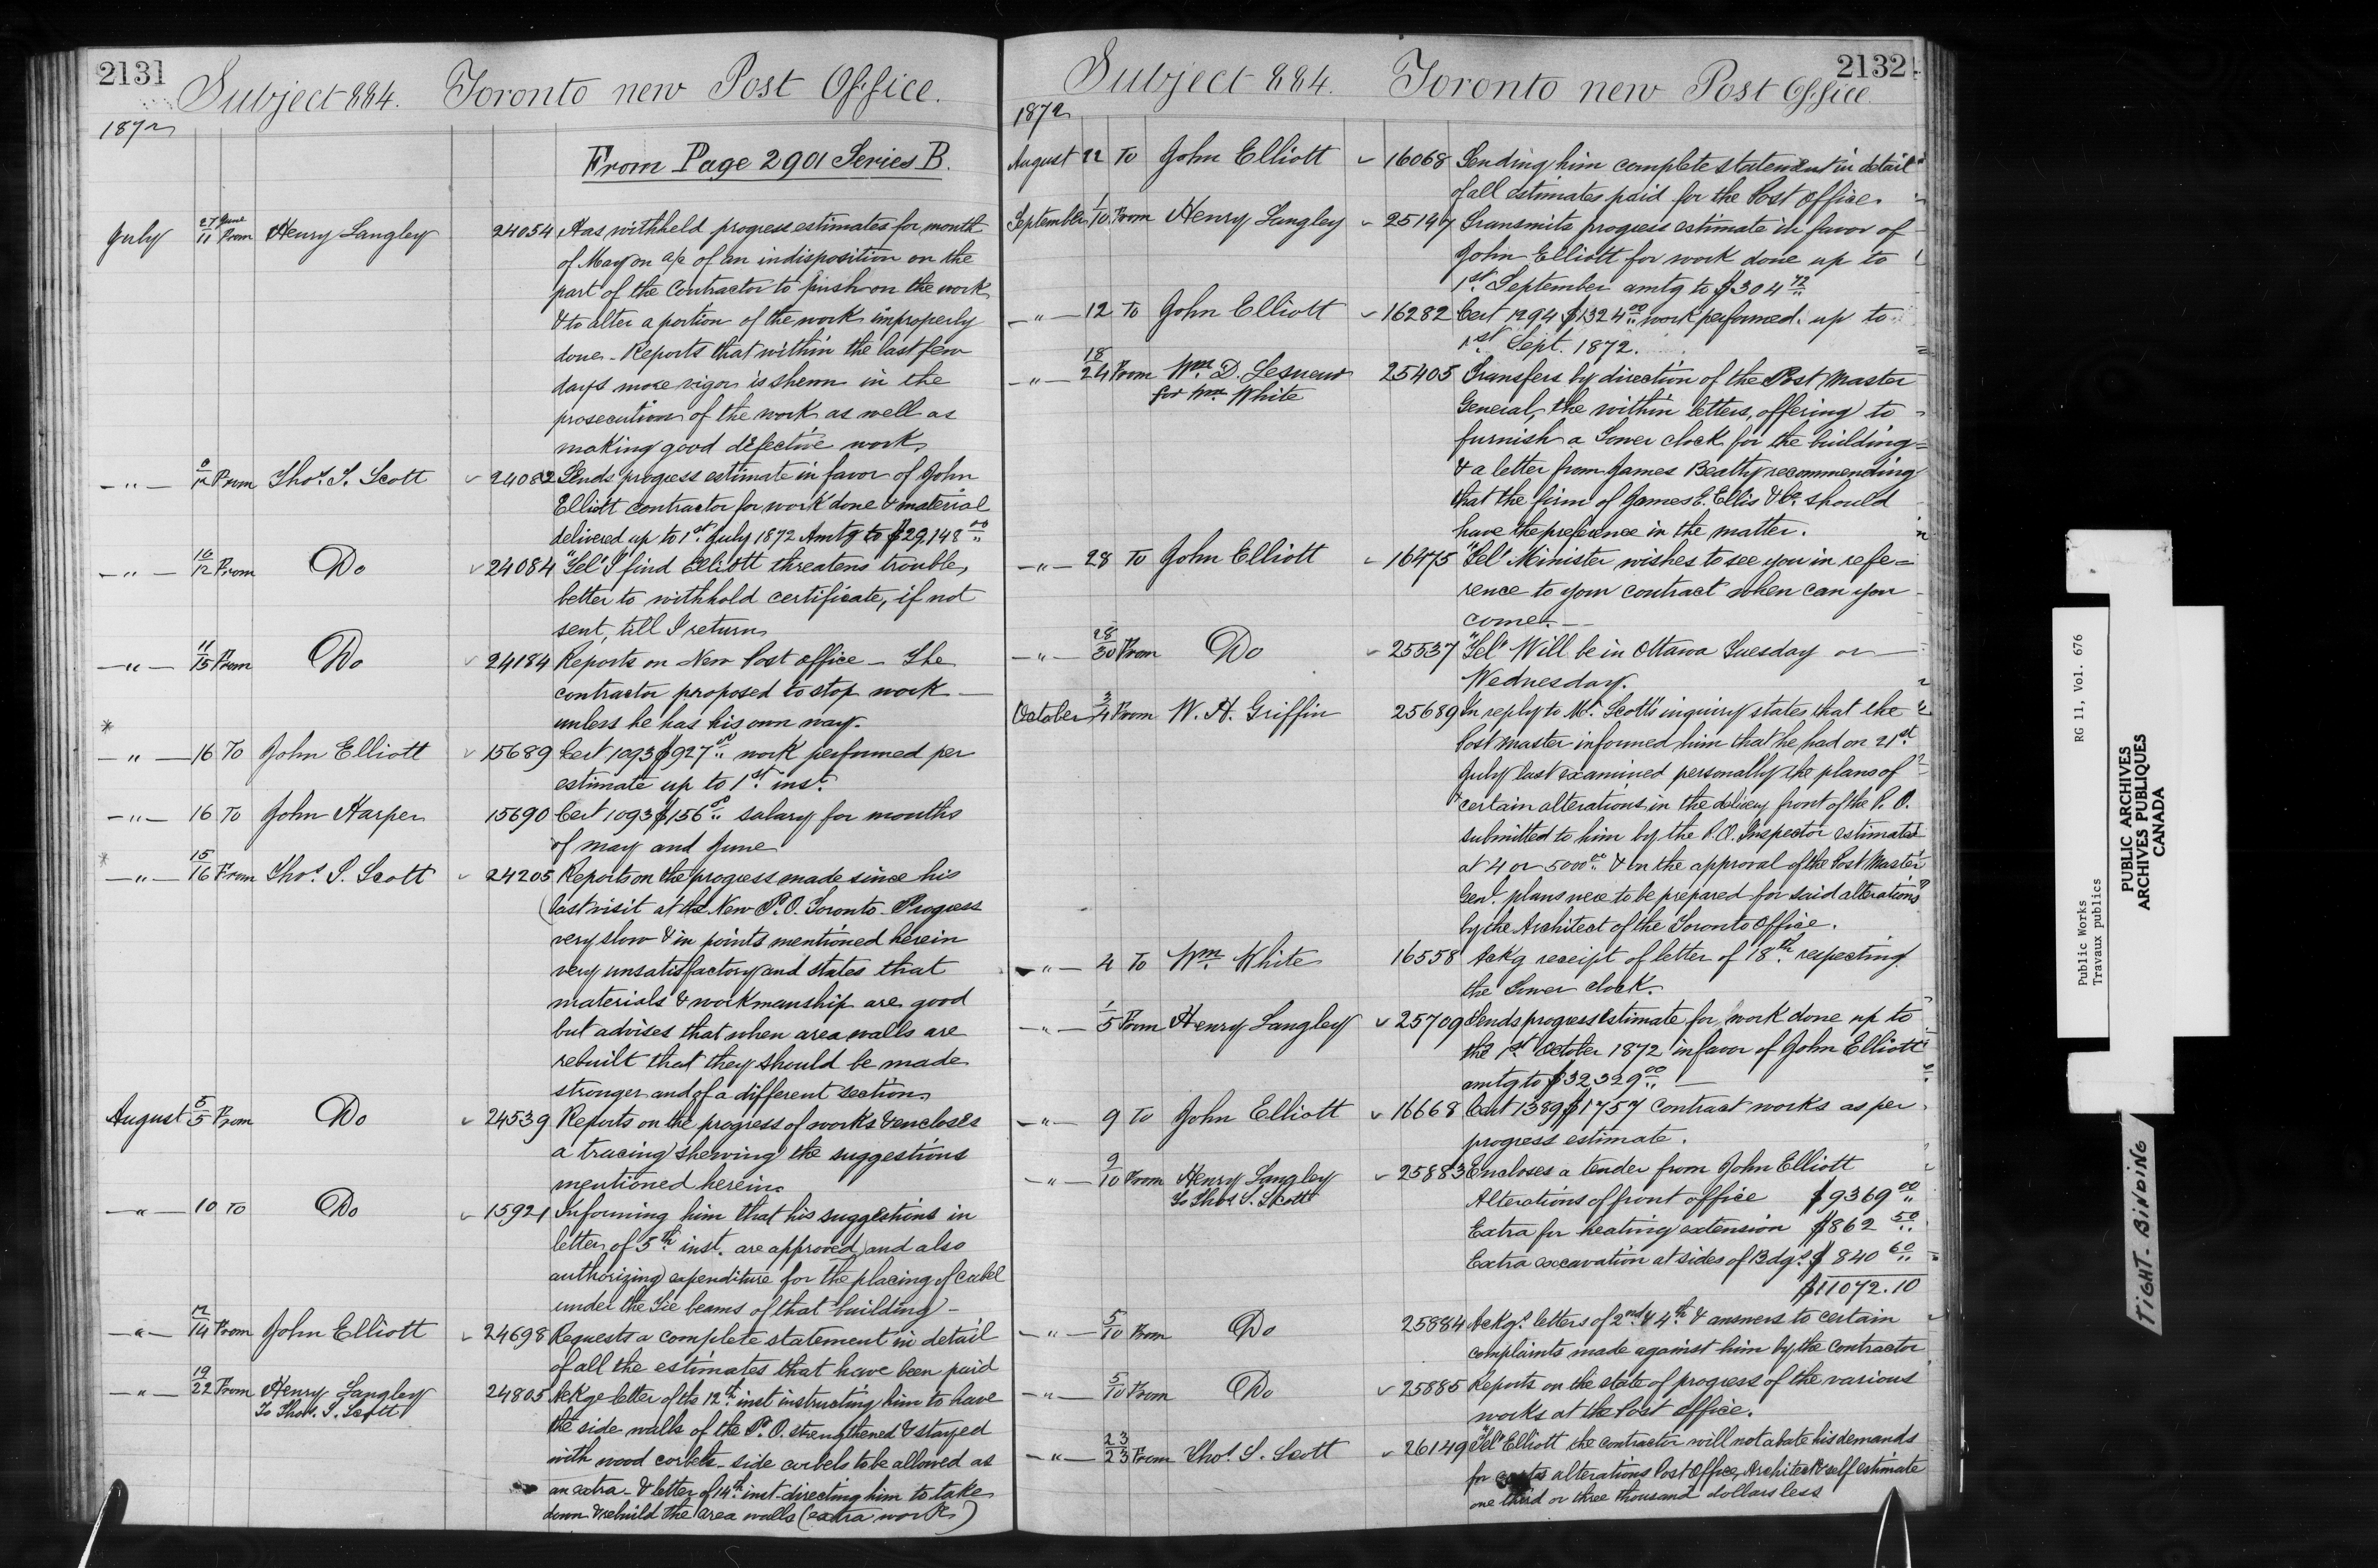 2131
Subject 884. Toronto new Post Office.
1872
From Page 2901 Series B.
July 27 June/11 From Henry Langley 24054 Has withheld progress estimates for month
of May on a/c of an indisposition on the
part of the Contractor to push on the work
& to alter a portion of the work improperly
done - Reports that within the last few
days more vigor is shewn in the
prosecution of the work as well as
making good defective work.
-"- 12 From Thos. S. Scott 24082 Sends progress estimate in favor of John
Elliott contractor for work done & material
delivered up to 1st July 1872 Amtg to $29,148 00
-"- 12 From Do 24084 "Tel" I find Elliott threatens trouble,
better to withhold certificate, if not
sent, till I return
-"- 11/15 From Do 24184 Reports on New Post office - The
contractor proposed to stop work -
unless he has his own way.
-"- 16 To John Elliott 15689 Cert 1093 $927 00 work performed per
estimate up to 1st inst.
-"- 16 To John Harper 15690 Cert 1093 $156 00 salary for months
of May and June
-"- 15/16 From Thos. S. Scott 24205 Reports on the progress made since his
last visit at the New P.O. Toronto - Progress
very slow & in points mentioned herein
very unsatisfactory and states that
materials & workmanship are good
but advises that when area walls are
rebuilt that they should be made
stronger and of a different section
August 5/5 From Do 24539 Reports on the progress of works & encloses
a tracing shewing the suggestions
mentioned herein.
-"- 10 To Do 15921 Informing him that his suggestions in
letter of 5th inst. are approved, and also
authorizing expenditure for the placing of
under the Tie beams of that building -
-"- 14 From John Elliott 24698 Requests a complete statement in detail
of all the estimates that have been paid
-"- 19/22 From Henry Langley 24805 Ackge letter of the 12th inst instructing him to have
To Thos. S. Scott
the side walls of the P.O. strengthened & stayed
with wood corbels - side corbels to be allowed as
an extra - & letter of 14th inst directing him to take
down & rebuild the area walls (extra work)
2132
Subject 884. Toronto new Post Office.
1872
August 22 To John Elliott 16068 Sending him complete statement in detail
of all estimates paid for the Post Office.
September 1/10 From Henry Langley 25147 Transmits progress estimate in favor of
John Elliott for work done up to
1st September amtg to $304 72
-"- 12 To John Elliott 16282 Cert 1294 $1324 00 work performed up to
1st Sept. 1872.
-"- 18/24 From Wm. D. Lesueur 25405 Transfers by direction of the Post Master
for Wm White
General, the within letters, offering to
furnish a Tower clock for the building
& a letter from James Beatty recommending
that the firm of James E. Ellis & Co. should
have the preference in the matter.
-"- 28 To John Elliott 16475 "Tel" Minister wishes to see you in refe=
rence to your contract when can you
come. -
-"- 28/30 From Do 25537 "Tel" Will be in Ottawa Tuesday or -
Wednesday.
October 3/4 From W. H. Griffin 25689 In reply to Mr. Scott's inquiry states that the
Post Master informed him that he had on 21st
July last examined personally the plans of
certain alterations in the delivery front of the P.O.
submitted to him by the P.O. Inspector estimated
at 4 or 5000 00 & on the approval of the Post Master
Genl. plans were to be prepared for said alterations
by the Architect of the Toronto Office.
-"- 4 To Wm. White 16558 Ackg receipt of letter of 18th respecting
the Tower clock.
-"- 1/5 From Henry Langley 25709 Sends progress estimate for work done up to
the 1st October 1872 in favor of John Elliott
amtg to $32,329 00 -
-"- 9 To John Elliott 16668 Cert 1389 $1757 Contract works as per
progress estimate.
-"- 9/10 From Henry Langley 25883 Encloses a tender from John Elliott
To Thos S. Scott
Alterations of front office $9369 00
Extra for heating extension $862 50
Extra excavation at sides of Bdgs $840 60
$11072.10
-"- 5/10 From Do 25884 Ackgs letters of 2nd & 4th & answers to certain
complaints made against him by the contractor
-"- 5/10 From Do 25885 Reports on the state of progress of the various
works at the Post Office.
-"- 23/23 From Thos. S. Scott 26149 "Tel" Elliott the contractor will not abate his demands
for alterations Post Office, Architect & self estimate
one third or three thousand dollars less
Public Works RG 11, Vol. 676
Travaux publics
PUBLIC ARCHIVES
ARCHIVES PUBLIQUES
CANADA
TIGHT BINDING